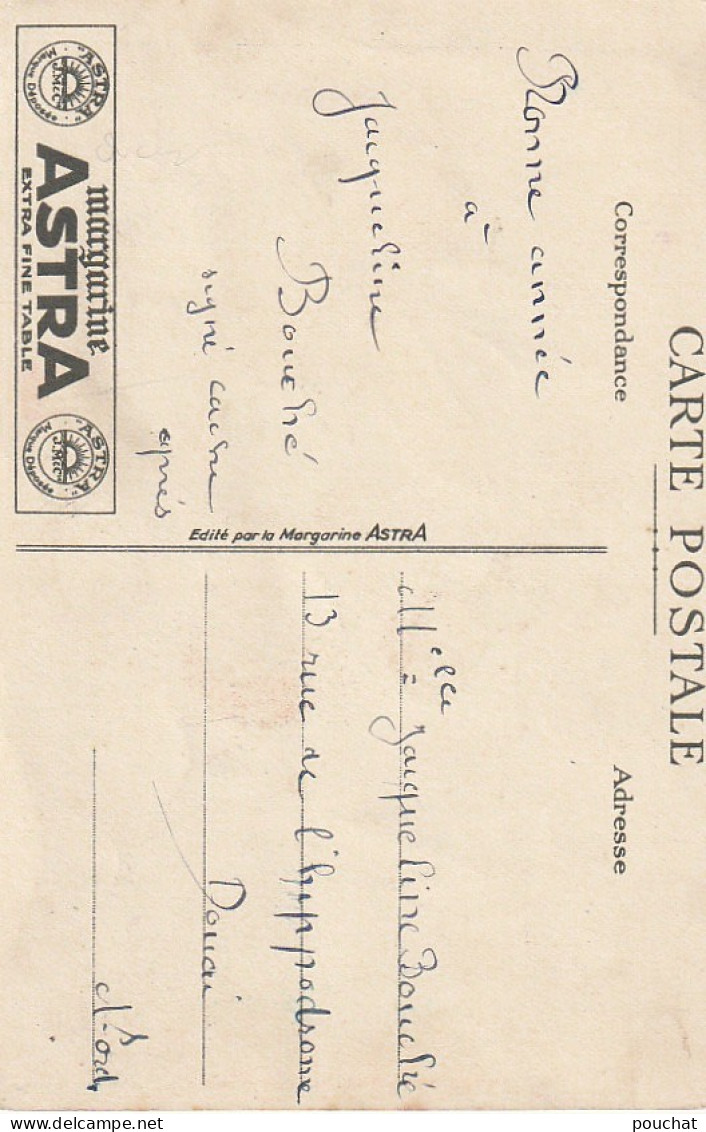 CARTE POSTALE
Correspondance
Bonne année
à
Jacqueline
Bouchié
signé
après
margarine
ASTRA
EXTRA FINE TABLE
"ASTRA"
Marque Déposée
"ASTRA"
Marque Déposée
Edité par la Margarine ASTRA
Adresse
Melle Jacqueline Bouchié
13 rue de l'hippodrome
Douai
Nord
pouchat